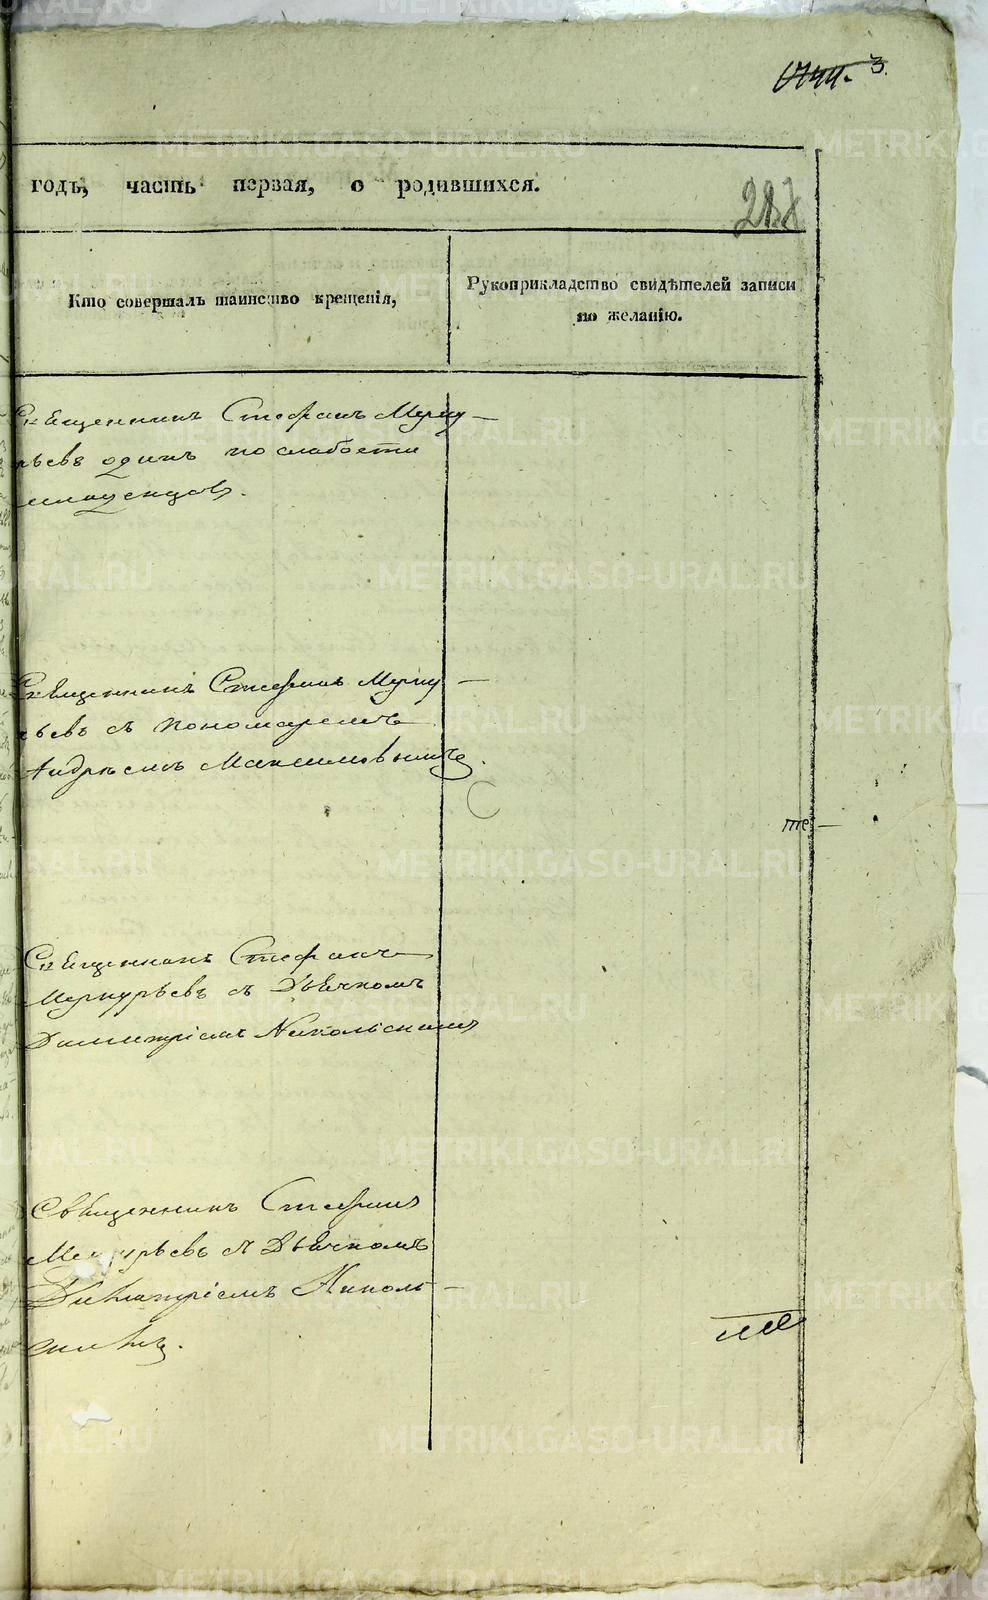 3.
годъ, часть первая, о родившихся.
Кто совершалъ таинство крещенія,
Рукоприкладство свидѣтелей записи
по желанію.
Священникъ Стефанъ Мерку
рьевъ одинъ по слабости
младенцовъ.
Священникъ Стефанъ Мерку
рьевъ съ пономаремъ
Андреемъ Максимовымъ.
Священникъ Стефанъ
Меркурьевъ съ Дьячкомъ
Димитріемъ Никольскимъ
Священникъ Стефанъ
Меркурьевъ съ Дьячкомъ
Димитріемъ Николь
скимъ.
METRIKI.GASO-URAL.RU